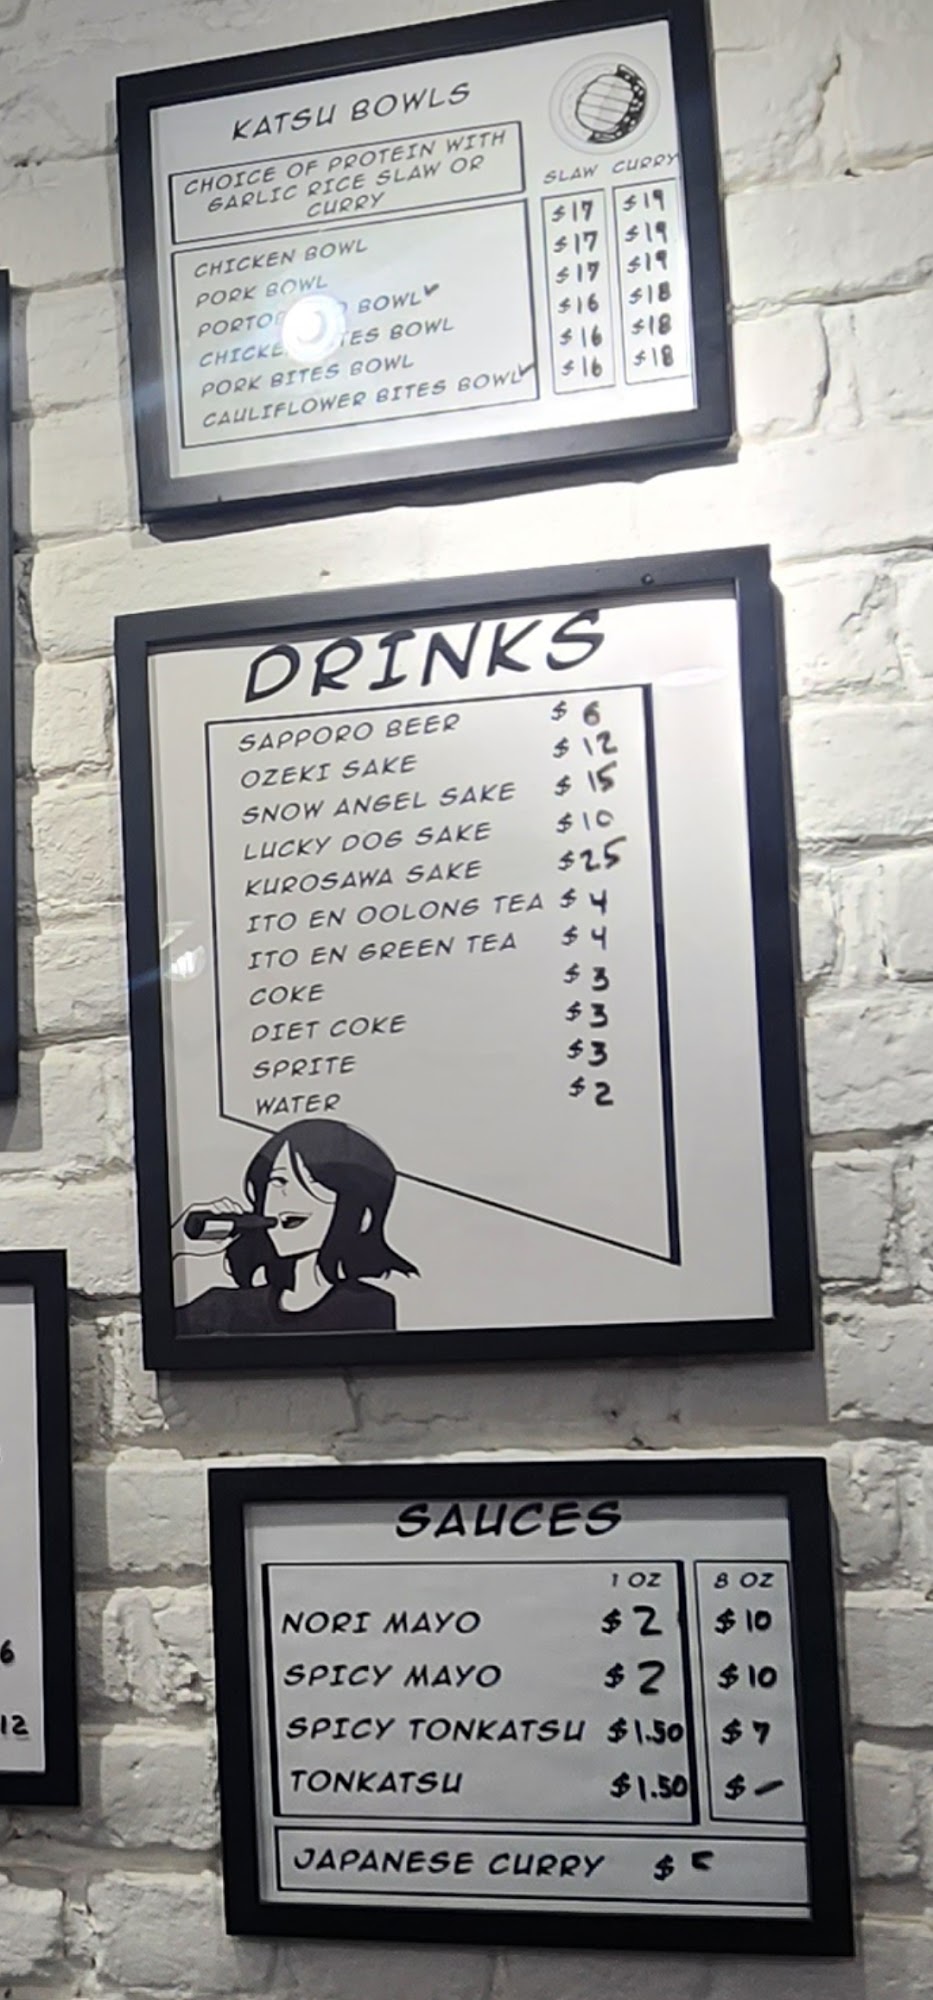 KATSU BOWLS
CHOICE OF PROTEIN WITH
GARLIC RICE SLAW OR
CURRY
SLAW CURRY
CHICKEN BOWL $17 $19
PORK BOWL $17 $19
BOWL✓ $17 $19
BOWL $16 $18
PORK BITES BOWL $16 $18
CAULIFLOWER BITES BOWL✓ $16 $18
DRINKS
SAPPORO BEER $6
OZEKI SAKE $12
SNOW ANGEL SAKE $15
LUCKY DOG SAKE $10
KUROSAWA SAKE $25
ITO EN OOLONG TEA $4
ITO EN GREEN TEA $4
COKE $3
DIET COKE $3
SPRITE $3
WATER $2
SAUCES
1 OZ 8 OZ
NORI MAYO $2 $10
SPICY MAYO $2 $10
SPICY TONKATSU $1.50 $7
TONKATSU $1.50 $-
JAPANESE CURRY $5
6
12